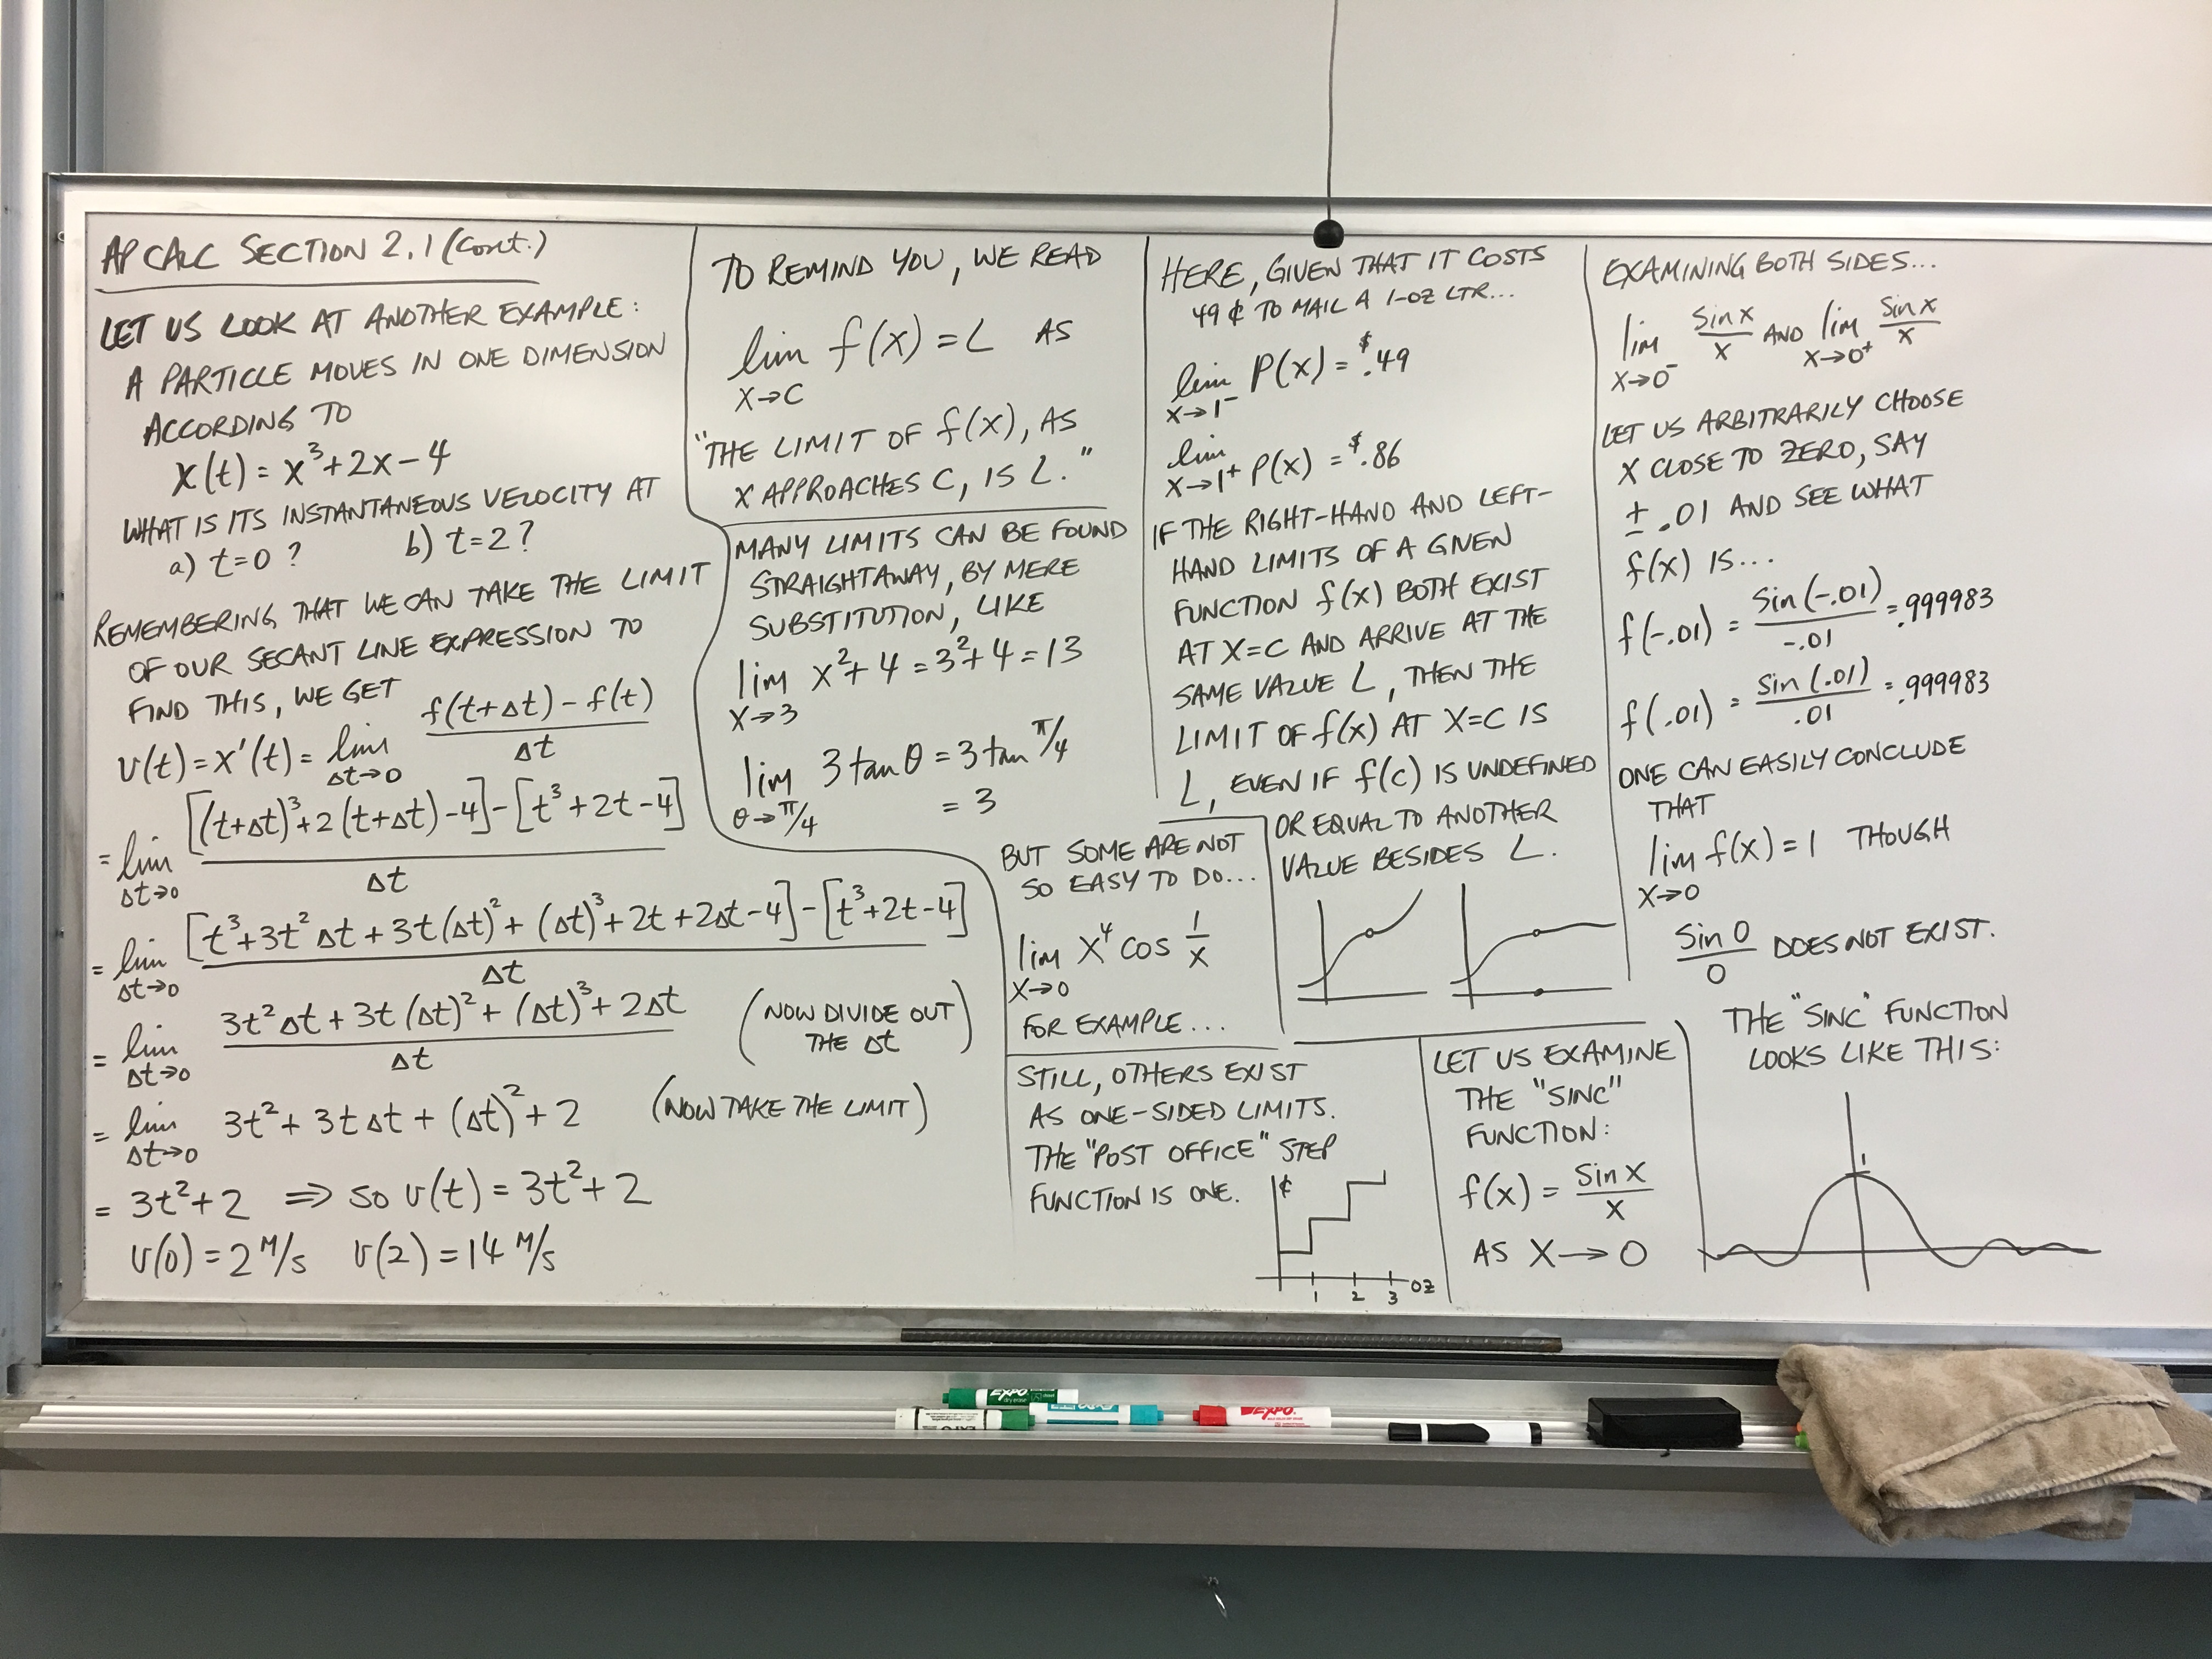 AP CALC SECTION 2.1 (cont.)
LET US LOOK AT ANOTHER EXAMPLE:
A PARTICLE MOVES IN ONE DIMENSION
ACCORDING TO
x(t) = x³+2x-4
WHAT IS ITS INSTANTANEOUS VELOCITY AT
a) t=0? b) t=2?
REMEMBERING THAT WE CAN TAKE THE LIMIT
OF OUR SECANT LINE EXPRESSION TO
FIND THIS, WE GET
v(t)=x'(t)= lim Δt→0 (f(t+Δt)-f(t))/Δt
= lim Δt→0 ([(t+Δt)³+2(t+Δt)-4]-[t³+2t-4])/Δt
= lim Δt→0 ([t³+3t²Δt+3t(Δt)²+(Δt)³+2t+2Δt-4]-[t³+2t-4])/Δt
= lim Δt→0 (3t²Δt+3t(Δt)²+(Δt)³+2Δt)/Δt (NOW DIVIDE OUT
THE Δt)
= lim Δt→0 3t²+3tΔt+(Δt)²+2 (NOW TAKE THE LIMIT)
= 3t²+2 ⇒ so v(t)=3t²+2
v(0)=2 M/s v(2)=14 M/s
TO REMIND YOU, WE READ
lim x→c f(x)=L AS
"THE LIMIT OF f(x), AS
x APPROACHES C, IS L."
MANY LIMITS CAN BE FOUND
STRAIGHTAWAY, BY MERE
SUBSTITUTION, LIKE
lim x→3 x²+4=3²+4=13
lim θ→π/4 3tanθ=3tan π/4
= 3
BUT SOME ARE NOT
SO EASY TO DO...
lim x→0 x⁴ cos 1/x
FOR EXAMPLE...
STILL, OTHERS EXIST
AS ONE-SIDED LIMITS.
THE "POST OFFICE" STEP
FUNCTION IS ONE.
¢
1 2 3 OZ
HERE, GIVEN THAT IT COSTS
49¢ TO MAIL A 1-OZ LTR...
lim x→1⁻ P(x)=$.49
lim x→1⁺ P(x)=$.86
IF THE RIGHT-HAND AND LEFT-
HAND LIMITS OF A GIVEN
FUNCTION f(x) BOTH EXIST
AT X=C AND ARRIVE AT THE
SAME VALUE L, THEN THE
LIMIT OF f(x) AT X=C IS
L, EVEN IF f(c) IS UNDEFINED
OR EQUAL TO ANOTHER
VALUE BESIDES L.
LET US EXAMINE
THE "SINC"
FUNCTION:
f(x) = sin x/x
AS X→0
EXAMINING BOTH SIDES...
lim x→0⁻ sin x/x AND lim x→0⁺ sin x/x
LET US ARBITRARILY CHOOSE
X CLOSE TO ZERO, SAY
± .01 AND SEE WHAT
f(x) IS...
f(-.01) = sin(-.01)/-.01 = .999983
f(.01) = sin(.01)/.01 = .999983
ONE CAN EASILY CONCLUDE
THAT
lim x→0 f(x)=1 THOUGH
sin 0/0 DOES NOT EXIST.
THE "SINC" FUNCTION
LOOKS LIKE THIS:
1
EXPO
EXPO
EXPO